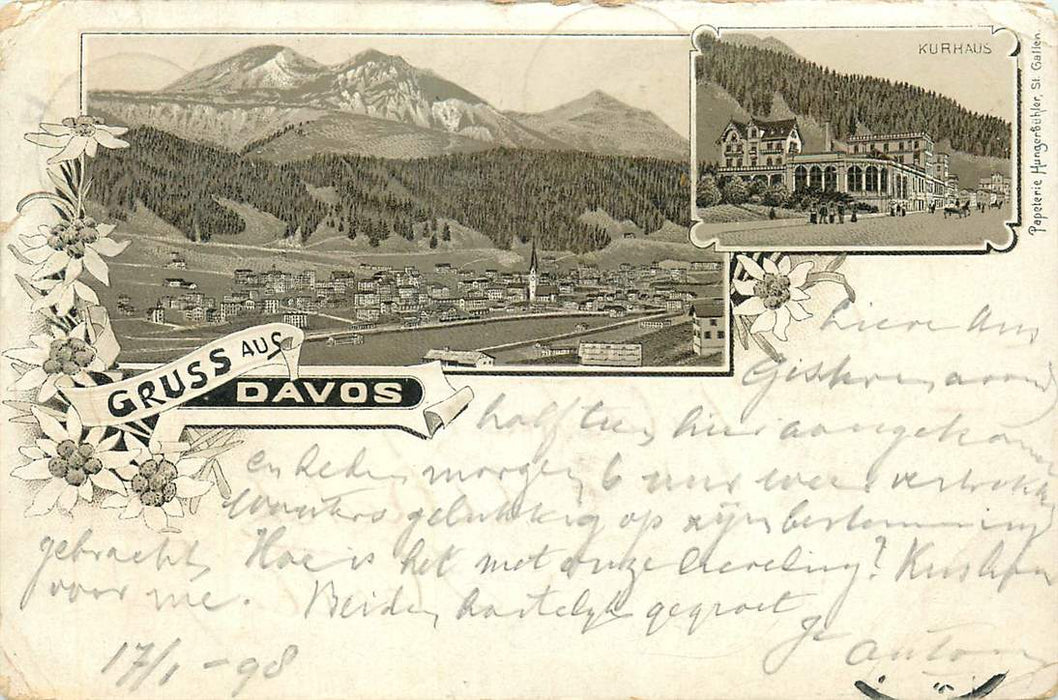 KURHAUS
Papeterie Hungerbühler, St. Gallen.
GRUSS AUS
DAVOS
Lieve
Gisteren avond
half tien hier aangekomen
en heden morgen 6 uur weer vertrokken
Wouters gelukkig op zijn bestemming
gebracht. Hoe is het met onze lieveling? Kus hem
voor me. Beiden hartelijk gegroet
17/1 - 98